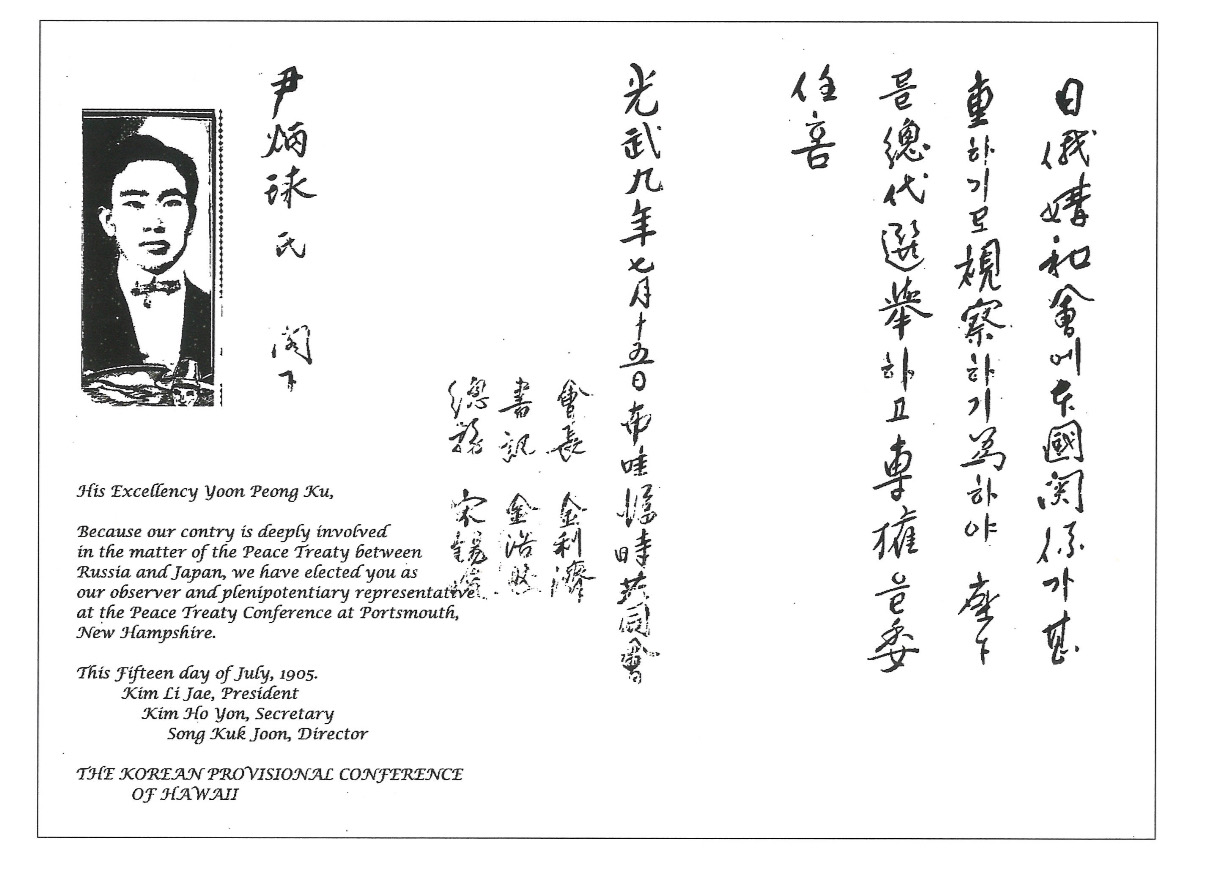 日俄媾和會에本國関係가甚
重하기로視察하기爲하야 座下
를總代選擧하고專權을委
任홈
光武九年七月十五日布哇臨時共同會
會長 金利濟
書記 金浩
總務 宋
尹炳球氏 閣下
His Excellency Yoon Peong Ku,
Because our contry is deeply involved
in the matter of the Peace Treaty between
Russia and Japan, we have elected you as
our observer and plenipotentiary representative
at the Peace Treaty Conference at Portsmouth,
New Hampshire.
This Fifteen day of July, 1905.
Kim Li Jae, President
Kim Ho Yon, Secretary
Song Kuk Joon, Director
THE KOREAN PROVISIONAL CONFERENCE
OF HAWAII